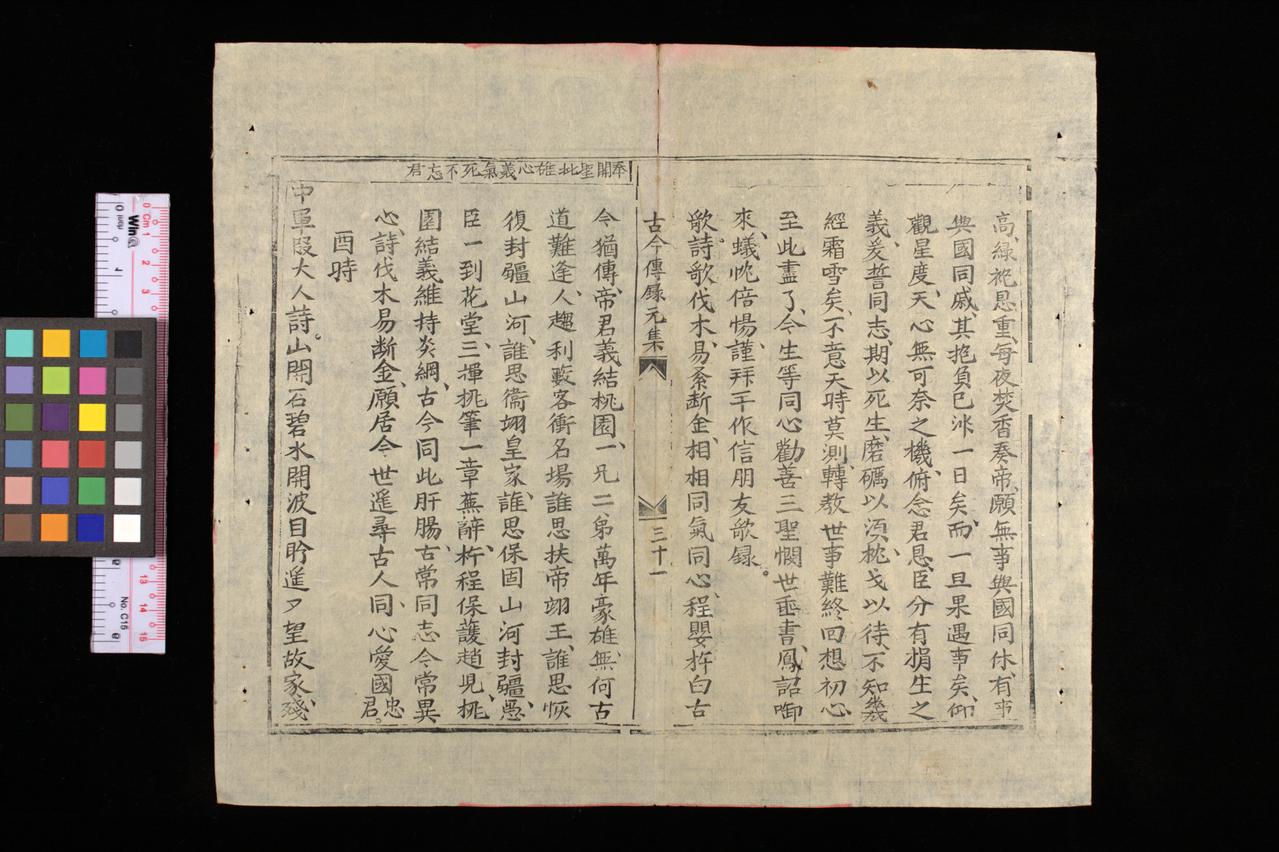 高、綠袍恩重、每夜焚香奏帝、願無事與國同休、有事
與國同戚、其抱負已非一日矣、而一旦果遇事矣、仰
觀星度、天心無可奈之機、俯念君恩、臣分有捐生之
義、爰誓同志、期以死生、磨礪以須、枕戈以待、不知幾
經霜雪矣、不意天時莫測、轉教世事難終、回想初心
至此盡了、今生等同心勸善三聖憫世垂書、鳳詔啣
來、蟻忱倍惕、謹拜手作信朋友歌錄。
歌詩歌伐木、易系斷金、相相同氣同心、程嬰杵臼古
古今傳錄元集
三十一
今猶傳、帝君義結桃園、一兄二弟萬年豪雄、無何古
道難逢、人趨利藪客衝名場、誰思扶帝翊王、誰思恢
復封疆山河、誰思衞翊皇家、誰思保固山河封疆、愚
臣一到花堂、三揮桃筆一章蕪辭、杵程保護趙兒、桃
園結義維持炎綱、古今同此肝腸、古常同志今常異
心、詩伐木易斷金、願居今世遙尋古人、同心愛國忠君。
酉時
奉開聖批雄心義氣死不忘君
中軍段大人詩。山開石碧水開波目盻進夕望故家、殘